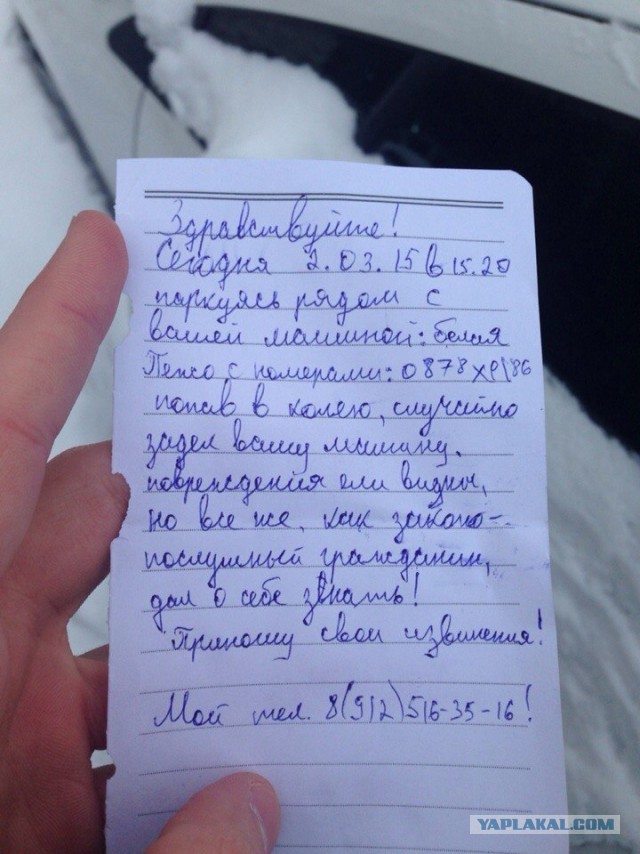 Здравствуйте!
Сегодня 2.03.15 в 15.20
паркуясь рядом с
вашей машиной: белая
Пежо с номерами: 0878 ХР/86
попав в колею, случайно
задел вашу машину.
повреждения еле видны,
но все же, как законо-
послушный гражданин,
дал о себе знать!
Приношу свои извинения!
Мой тел. 8(912)516-35-16!
YAPLAKAL.COM